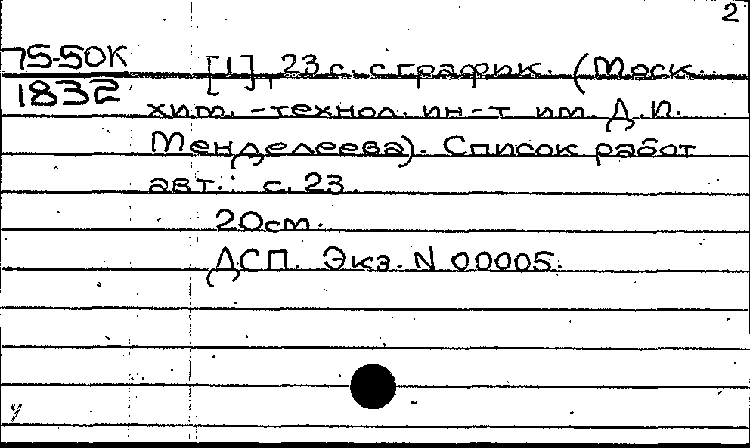 2
75-50К
1832
[1], 23 с. с график. (Моск.
хим.-технол. ин-т им. Д.И.
Менделеева). Список работ
авт.: с. 23.
20см.
ДСП. Экз. N 00005.